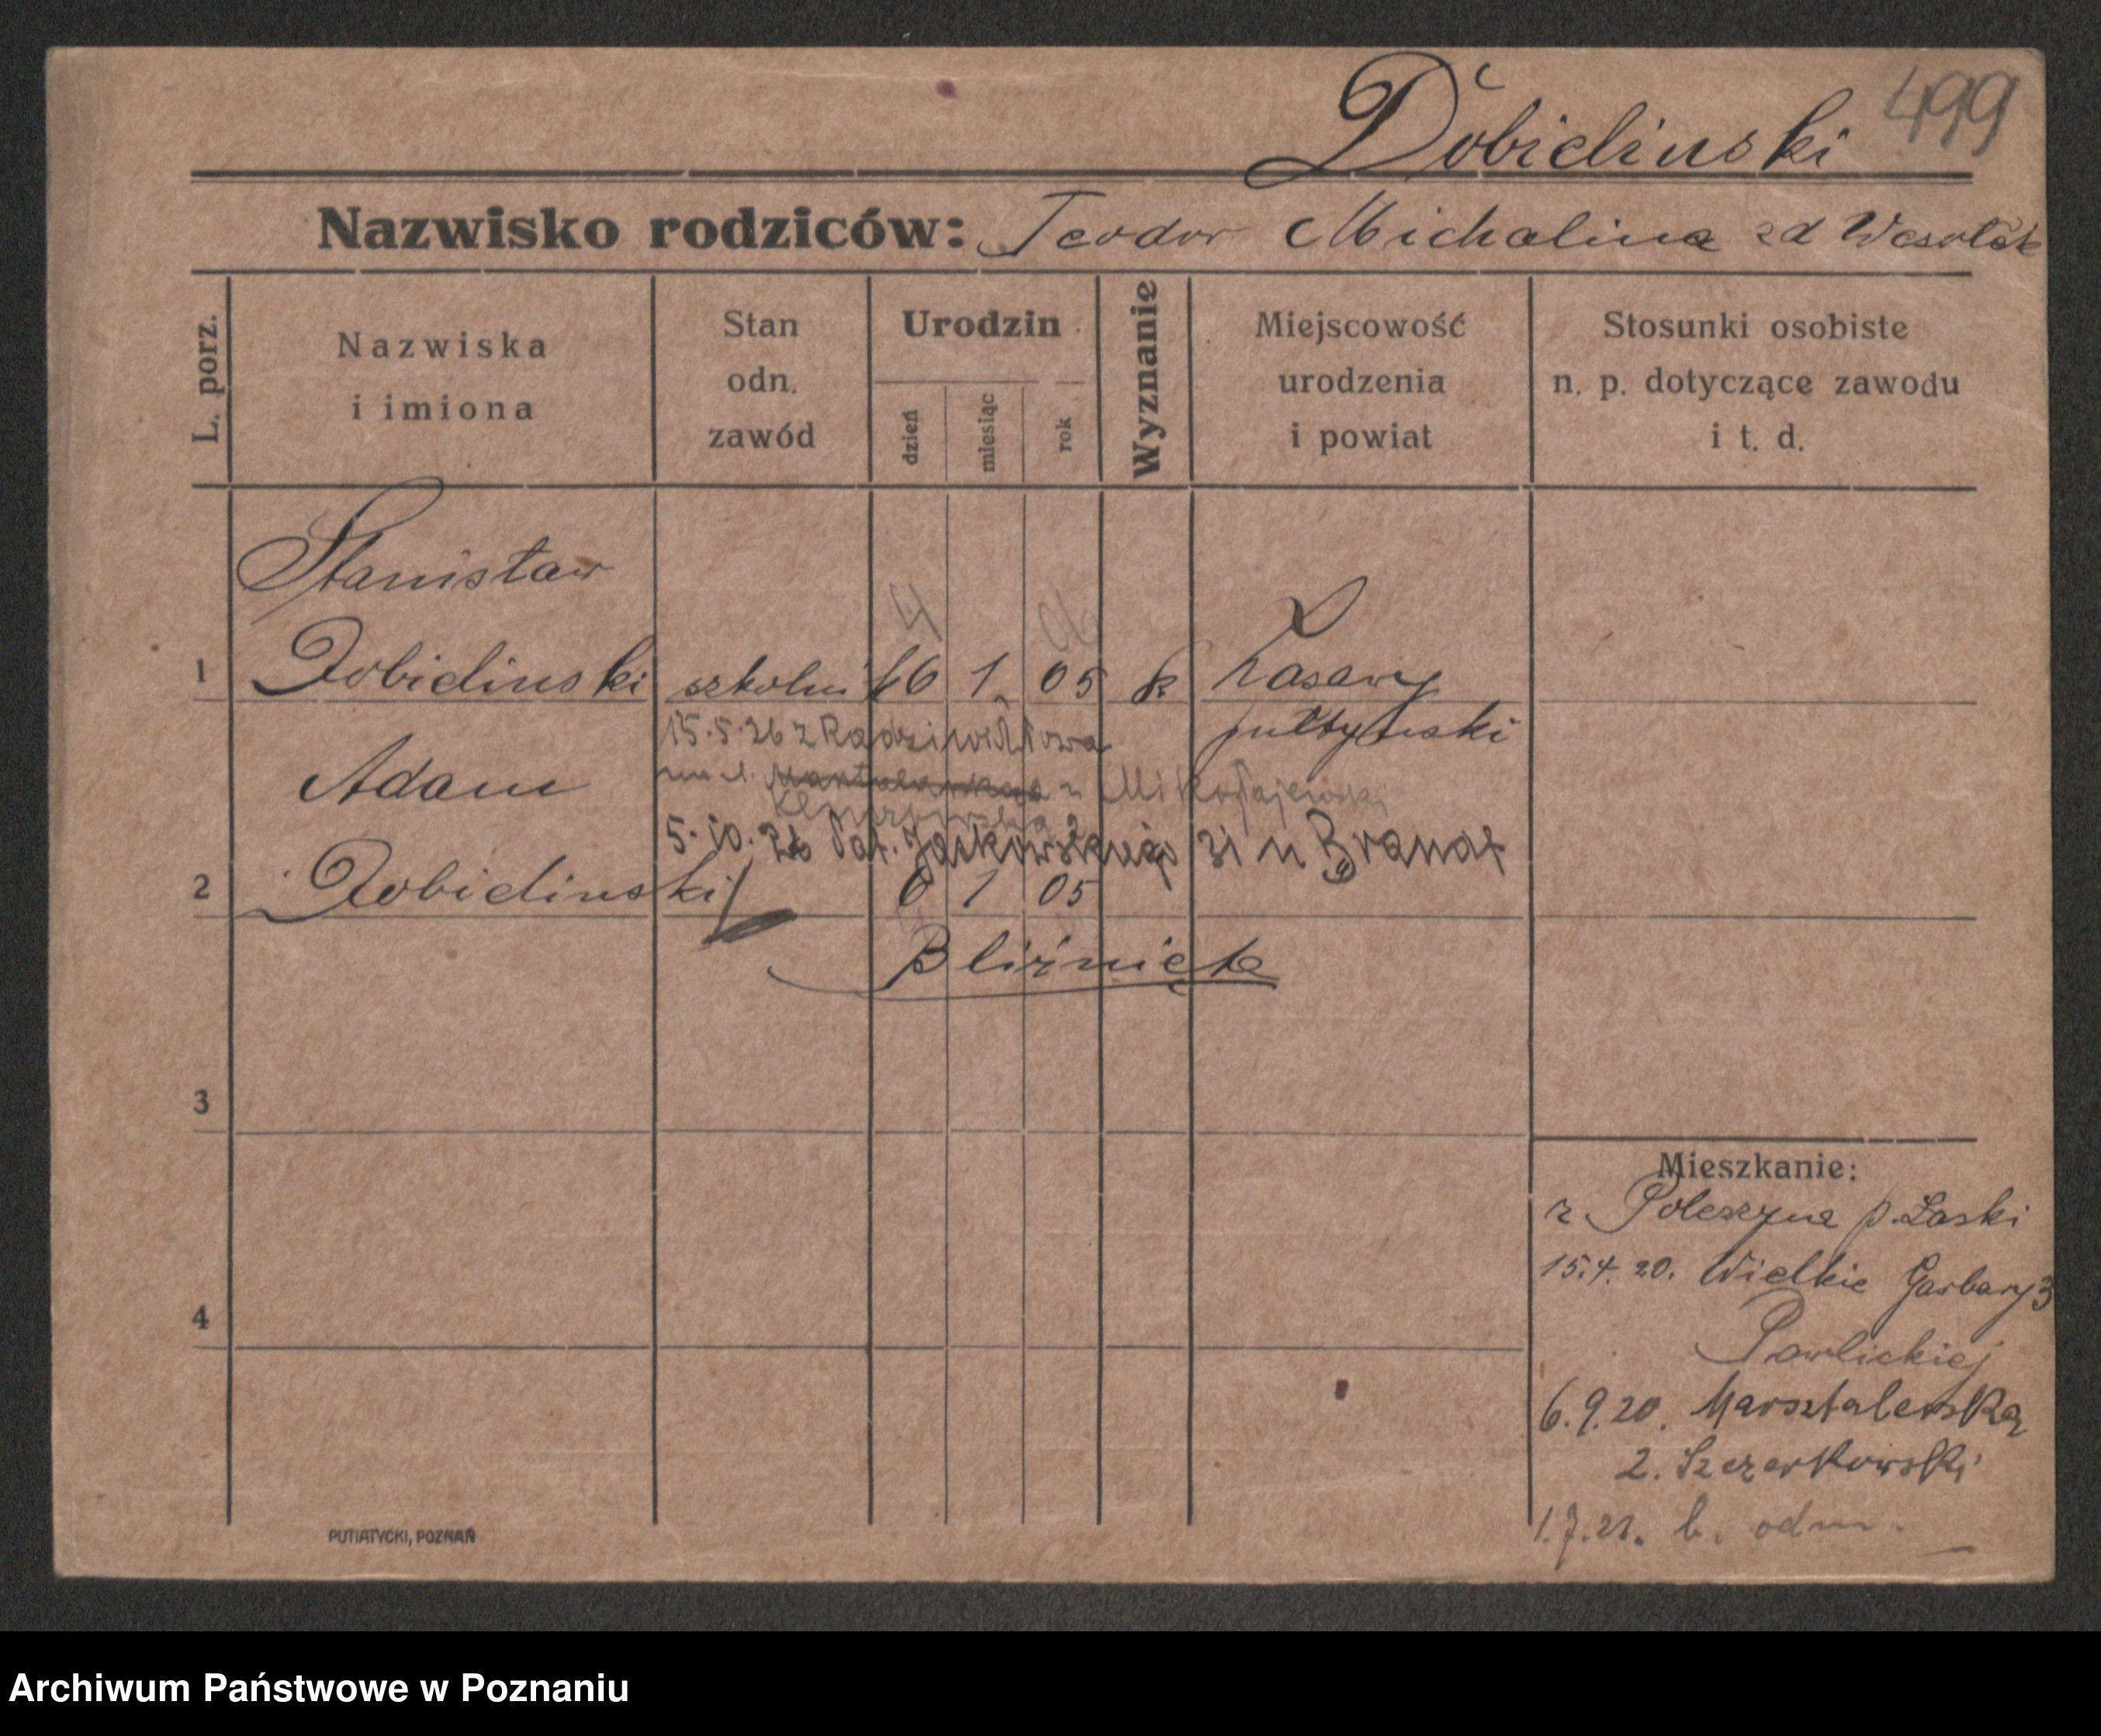 Dobidinski 499
Nazwisko rodziców: Teodor Michalina zd Wesołek
L. porz.
Nazwiska
i imiona
Stan
odn.
zawód
Urodzin
dzień
miesiąc
rok
Wyznanie
Miejscowość
urodzenia
i powiat
Stosunki osobiste
n. p. dotyczące zawodu
i t. d.
Stanisław
1 Dobidinski 6 1 05 k
15.5.26 z Radziwiłłowa
Adam
u Mikołajewski
5.10.26 Jackowskiego 31 u Brandt
2 Dobidinski 6 1 05
Bliźnięta
3
4
Mieszkanie:
z Poleszyna p. Łaski
15.4.20. Wielkie Garbary 3
Pawlickiej
6.9.20. Marsztalerska
2. Szczerkowski
1.7.21. b. odm.
PUTIATYCKI, POZNAŃ
Archiwum Państwowe w Poznaniu